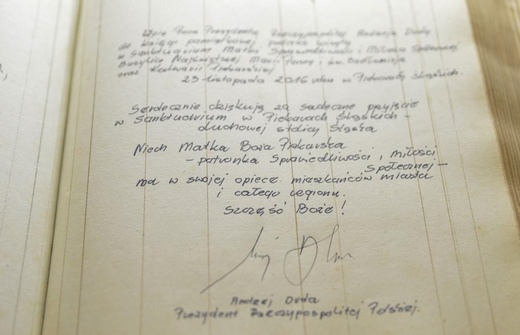 Wpis Pana Prezydenta Rzeczypospolitej Andrzeja Dudy
do księgi pamiątkowej podczas wizyty
w Sanktuarium Matki Sprawiedliwości i Miłości Społecznej
Bazylice Najświętszej Maryi Panny i św. Bartłomieja
oraz Kalwarii Piekarskiej
23 listopada 2016 roku w Piekarach Śląskich.
Serdecznie dziękuję za serdeczne przyjęcie
w Sanktuarium w Piekarach Śląskich -
duchowej stolicy Śląska
Niech Matka Boża Piekarska
- patronka Sprawiedliwości i Miłości
Społecznej -
ma w swojej opiece mieszkańców miasta
i całego regionu.
Szczęść Boże!
Andrzej Duda
Prezydent Rzeczypospolitej Polskiej.